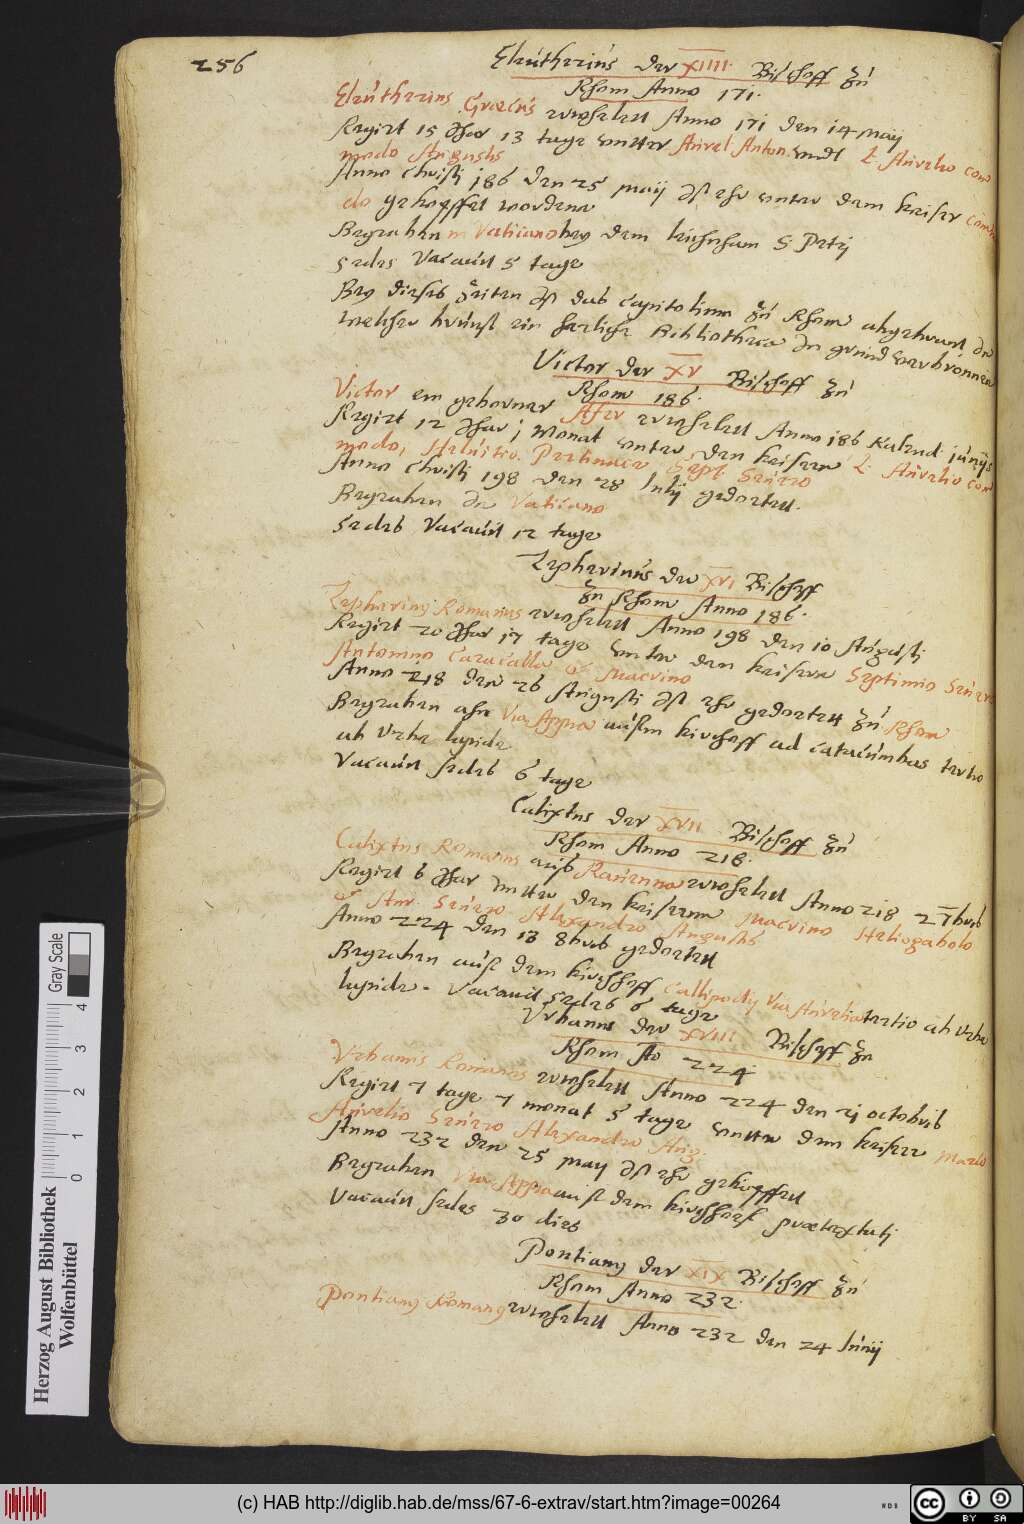 256
Eleutherius der XIIII. Bischoff zu
Rhom Anno 171.
Eleutherius Graecus erwehlett Anno 171 den 14 May
Regirt 15 Jhar 13 tage vntter Aurel Anton. vndt L. Aurelio Com
modo Augustis
Anno Christi 186 den 25 Maij Ist ehr vnter dem keiser Como
do gekopffet worden
Begraben in Vaticano bey dem leichnham S. Petrj
sedes Vacauit 5 tage
Bey dieses Zeiten Ist das Capitolium zu Rhom abgebrant In
welcher brunst ein herliche Bibliotheca In grund verbronnen
Victor der XV Bischoff zu
Rhom 186.
Victor ein geborner Afer erwehlett Anno 186 Kalend. junijs
Regirt 12 Jhar 1 Monat vnter den keisern L. Aurelio Com
modo, Heluitio Pertinace, Sept. Seuero
Anno Christi 198 den 28 Julij gedoetett.
Begraben In Vaticano
sedes Vacauit 12 tage
Zepherinus der XVI Bischoff
zu Rhom Anno 186.
Zepherinus Romanus erwehlett Anno 198 den 10 Augusti
Regirt 20 Jhar 17 tage vnter den keisern Septimio Seuero
Antonino Caracalla & Macrino
Anno 218 den 26 Augusti Ist ehr gedoetett zu Rhom
Begraben ahn Via Appia auffm kirchoff ad catacumbas tertio
ab Vrbe lapide
Vacauit sedes 6 tage
Calixtus der XVII Bischoff zu
Rhom Anno 218.
Calixtus Romanus auß Rauenna erwehlett Anno 218 2 7bris
Regirt 6 Jhar vntter den keisernn Macrino Heliogabolo
& Aur. Seuero Alexandro Augustis
Anno 224 den 13 8bris gedoetett
Begraben auff dem kirchhoff Callipodij Via Aurelia tertio ab Vrbe
lapide. Vacauit sedes 6 tage
Vrbanus der XVIII Bischoff zu
Rhom Ao 224
Vrbanus Romanus erwehlett Anno 224 den 21 octobris
Regirt 7 tage 7 monat 5 tage vntter dem keiser Marco
Aurelio Seuero Alexandro Aug.
Anno 232 den 25 May Ist ehr gekopffett
Begraben Via Appia auff dem kirchhoff praetextatj
Vacauit sedes 30 dies
Pontianus der XIX Bischoff zu
Rhom Anno 232.
Pontianus Romanus erwehlett Anno 232 den 24 Junij
Herzog August Bibliothek
Wolfenbüttel
Gray Scale
0 1 2 3 4
(c) HAB http://diglib.hab.de/mss/67-6-extrav/start.htm?image=00264
WDB
CC
BY SA